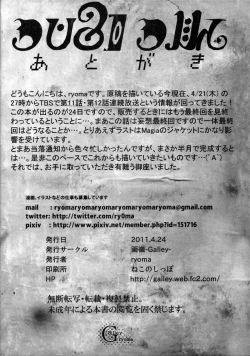 あとがき
どうもこんにちは、ryomaです。原稿を描いている今現在、4/21(木)の
27時からTBSで第11話・第12話連続放送という情報が回ってきました！
この本が出るのが24日ですので、販売するときにはもう最終回を見終
わっているということに…。まあこの話は妄想最終回ですので一体最終
回はどうなることか…。とりあえずラストはMagiaのジャケットにかなり影
響を受けています。
とまあ当落通知から色々忙しかったんですが、まさか半月で完成すると
は…。是非このペースでこれからも描いていきたいものです…(´A`)
それでは、お手に取っていただき有難う御座いました。
漫画、イラストなどの仕事も募集しています
mail : ryomaryomaryomaryomaryomaryoma@gmail.com
twitter: http://twitter.com/ry0ma
pixiv : http://www.pixiv.net/member.php?id=151716
発行日 2011.4.24
発行サークル 画廊-Galley-
発行者 ryoma
印刷所 ねこのしっぽ
HP http://galley.web.fc2.com/
無断転写・転載・複製禁止。
未成年による本書の閲覧を固く禁じます。